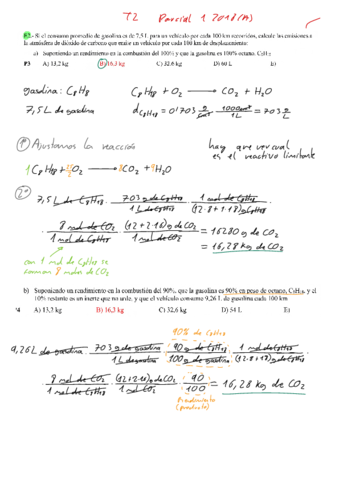 T2 Parcial 1 2018(A)
P2.- Si el consumo promedio de gasolina es de 7,5 L para un vehículo por cada 100 km recorridos, calcule las emisiones a
la atmósfera de dióxido de carbono que emite un vehículo por cada 100 km de desplazamiento:
a) Suponiendo un rendimiento en la combustión del 100% y que la gasolina es 100% octano, C₈H₁₈
P3 A) 13,2 kg B) 16,3 kg C) 32.6 kg D) 60 L E)
gasolina: C₈H₁₈ C₈H₁₈ + O₂ → CO₂ + H₂O
7,5 L de gasolina d C₈H₁₈ = 0'703 g/cm³ · 1000cm³/1L = 703 g/L
1) Ajustamos la reacción hay que ver cual
es el reactivo limitante
1 C₈H₁₈ + O₂ → 8CO₂ + 9H₂O
2) 7,5 L de C₈H₁₈ · 703 g de C₈H₁₈/1 L de C₈H₁₈ · 1 mol de C₈H₁₈/(12·8+1·18) g C₈H₁₈
· 8 mol de CO₂/1 mol de C₈H₁₈ · (12+2·16) g de CO₂/1 mol de CO₂ = 16280 g de CO₂
= 16,28 kg de CO₂
con 1 mol de C₈H₁₈ se
forman 8 moles de CO₂
b) Suponiendo un rendimiento en la combustión del 90%, que la gasolina es 90% en peso de octano, C₈H₁₈, y el
10% restante es un inerte que no arde, y que el vehículo consume 9,26 L de gasolina cada 100 km
P4 A) 13,2 kg B) 16,3 kg C) 32,6 kg D) 54 L E)
90% de C₈H₁₈
9,26 L de gasolina · 703 g de gasolina/1 L de gasolina · 90 g C₈H₁₈/100 g de gasolina · 1 mol de C₈H₁₈/(12·8+18) g de C₈H₁₈
8 mol de CO₂/1 mol de C₈H₁₈ · (12+2·16) g de CO₂/1 mol CO₂ · 90/100 = 16,28 kg de CO₂
Rendimiento
(producto)